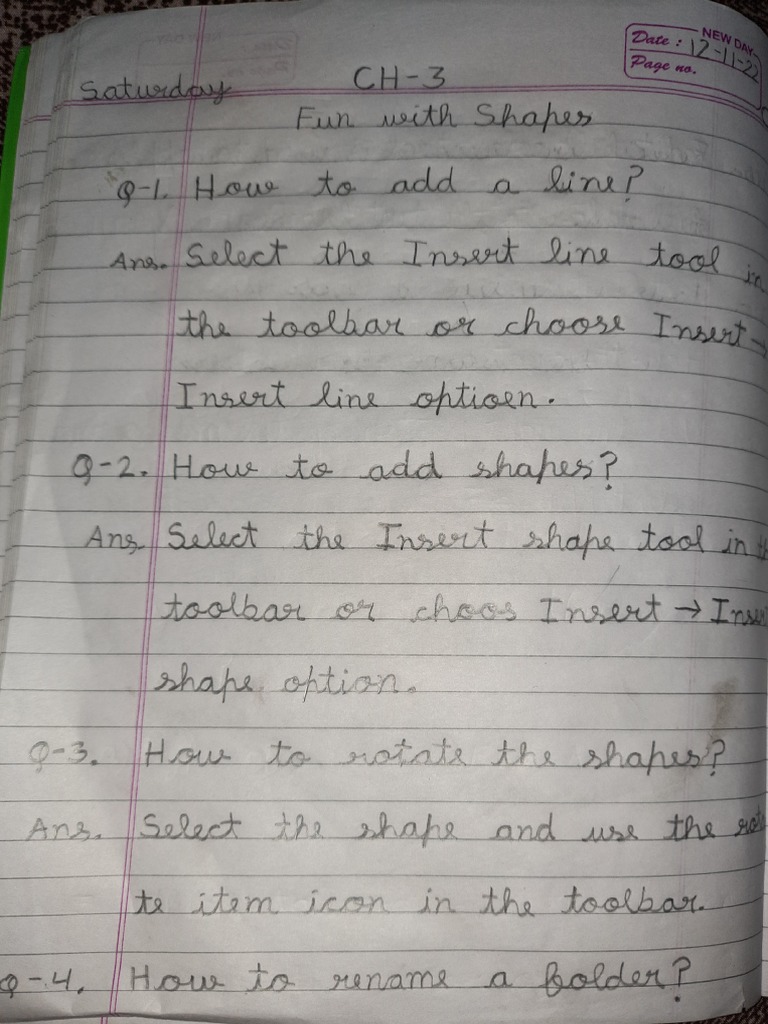 NEW DAY
Date : 12-11-22
Page no.
Saturday CH-3
Fun with Shapes
Q-1. How to add a line?
Ans. Select the Insert line tool in
the toolbar or choose Insert →
Insert line optioen.
Q-2. How to add shapes?
Ans Select the Insert shape tool in
toolbar or choos Insert → Inser
shape option.
Q-3. How to rotate the shapes?
Ans. Select the shape and use the rot
te item icon in the toolbar.
Q-4. How to rename a folder?